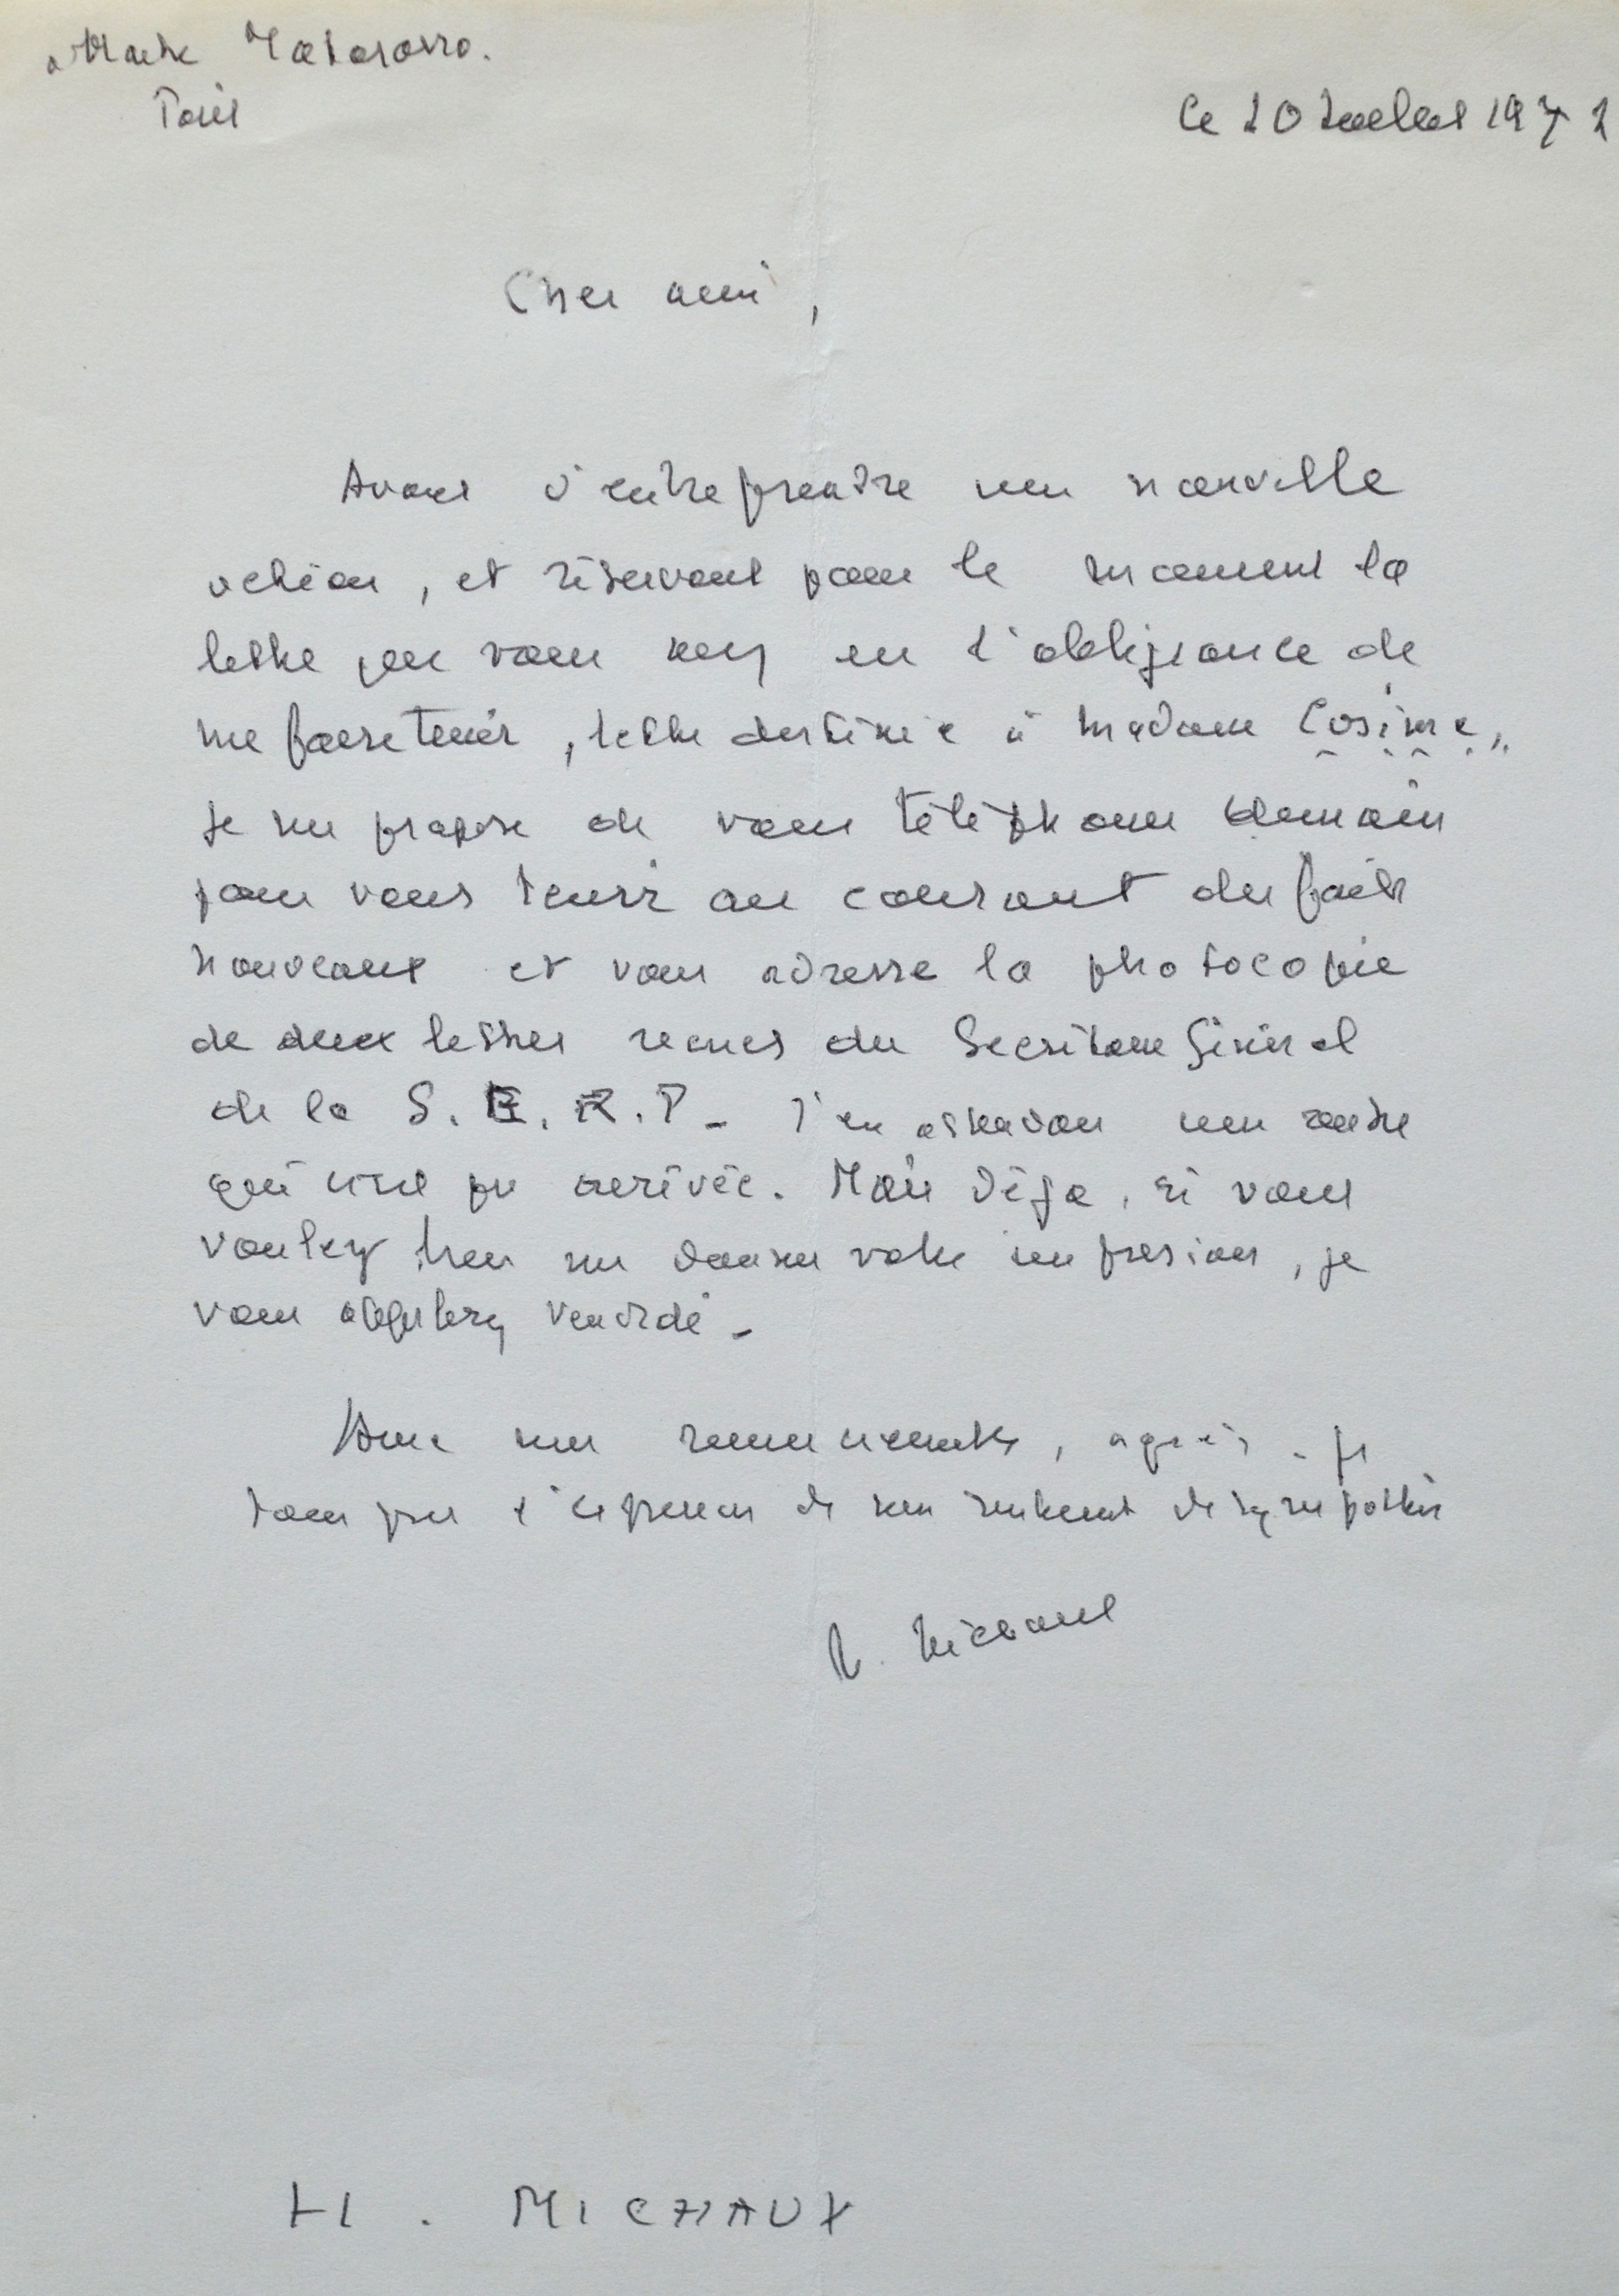 à Maître Matarasso.
Paris
le 20 Juillet 1971
Cher ami,
Avant d'entreprendre une nouvelle
action, et réservant pour le moment la
lettre que vous avez eu l'obligeance de
me faire tenir, lettre destinée à Madame Cosima,
je me propose de vous téléphoner demain
pour vous tenir au courant des faits
nouveaux et vous adresse la photocopie
de deux lettres reçues du Secrétaire Général
de la S.E.R.P. - J'en attendais une autre
qui n'est pas arrivée. Mais déjà, si vous
voulez bien me donner votre impression, je
vous appellerai vendredi -
Avec mes remerciements, agréez - je
vous prie l'expression de mes sentiments de sympathie
H. Michaux
H. MICHAUX